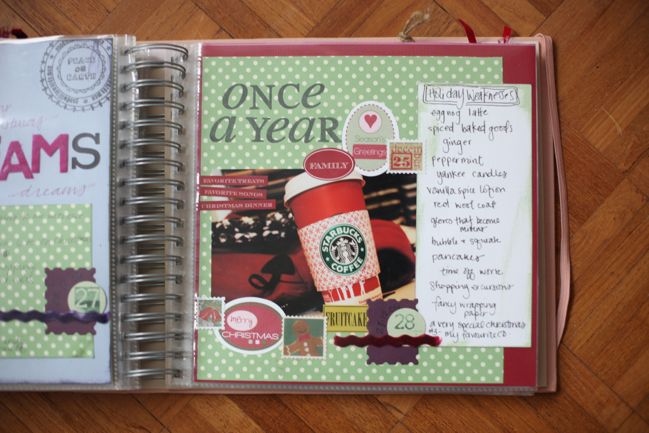 PEACE ON EARTH
AMS
dreams
27
ONCE
a YEAR
Season's
Greetings
decem
25
FAMILY
FAVORITE TREATS
FAVORITE SONGS
CHRISTMAS DINNER
STARBUCKS
COFFEE
merry
CHRISTMAS
FRUITCAKE
28
Holiday Weaknesses
eggnog latte
spiced baked goods
ginger
peppermint
yankee candles
vanilla spice lotion
red wool coat
gloves that become
mittens
bubble & squeak
pancakes
time off work
shopping excursions
fancy wrapping
paper
a very special christmas
my favourite CD